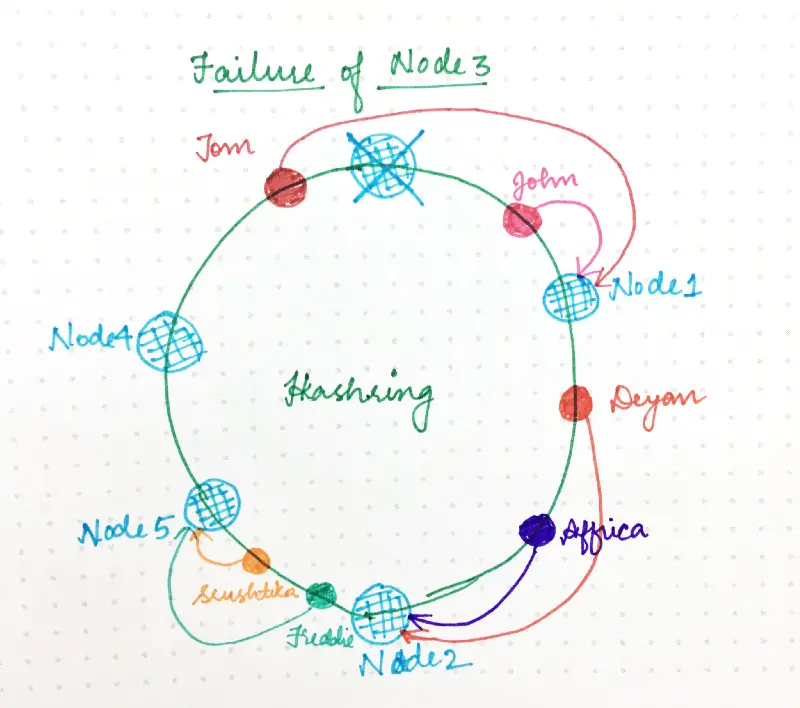 Failure of Node 3
Tom
John
Node1
Node4
Hashring
Deyan
Node 5
Affrica
Srushtika
Freddie
Node2